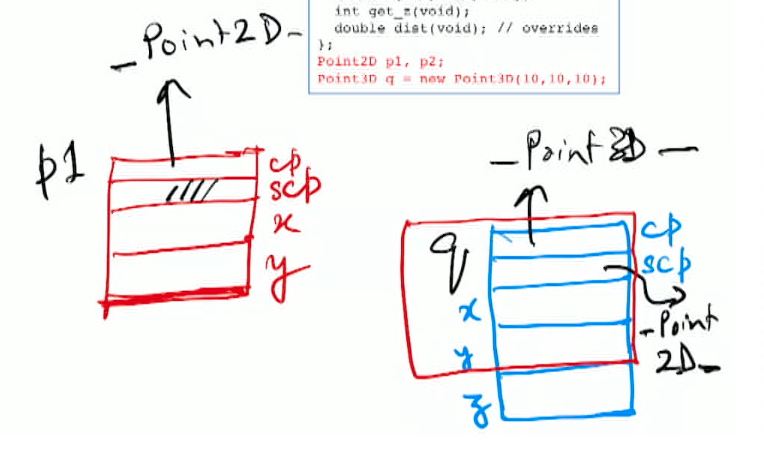 int get_z(void);
double dist(void); // overrides
};
Point2D p1, p2;
Point3D q = new Point3D(10,10,10);
_Point2D_
p1
cp
scp
x
y
_Point3D_
q
cp
scp
x
y
z
_Point
2D_